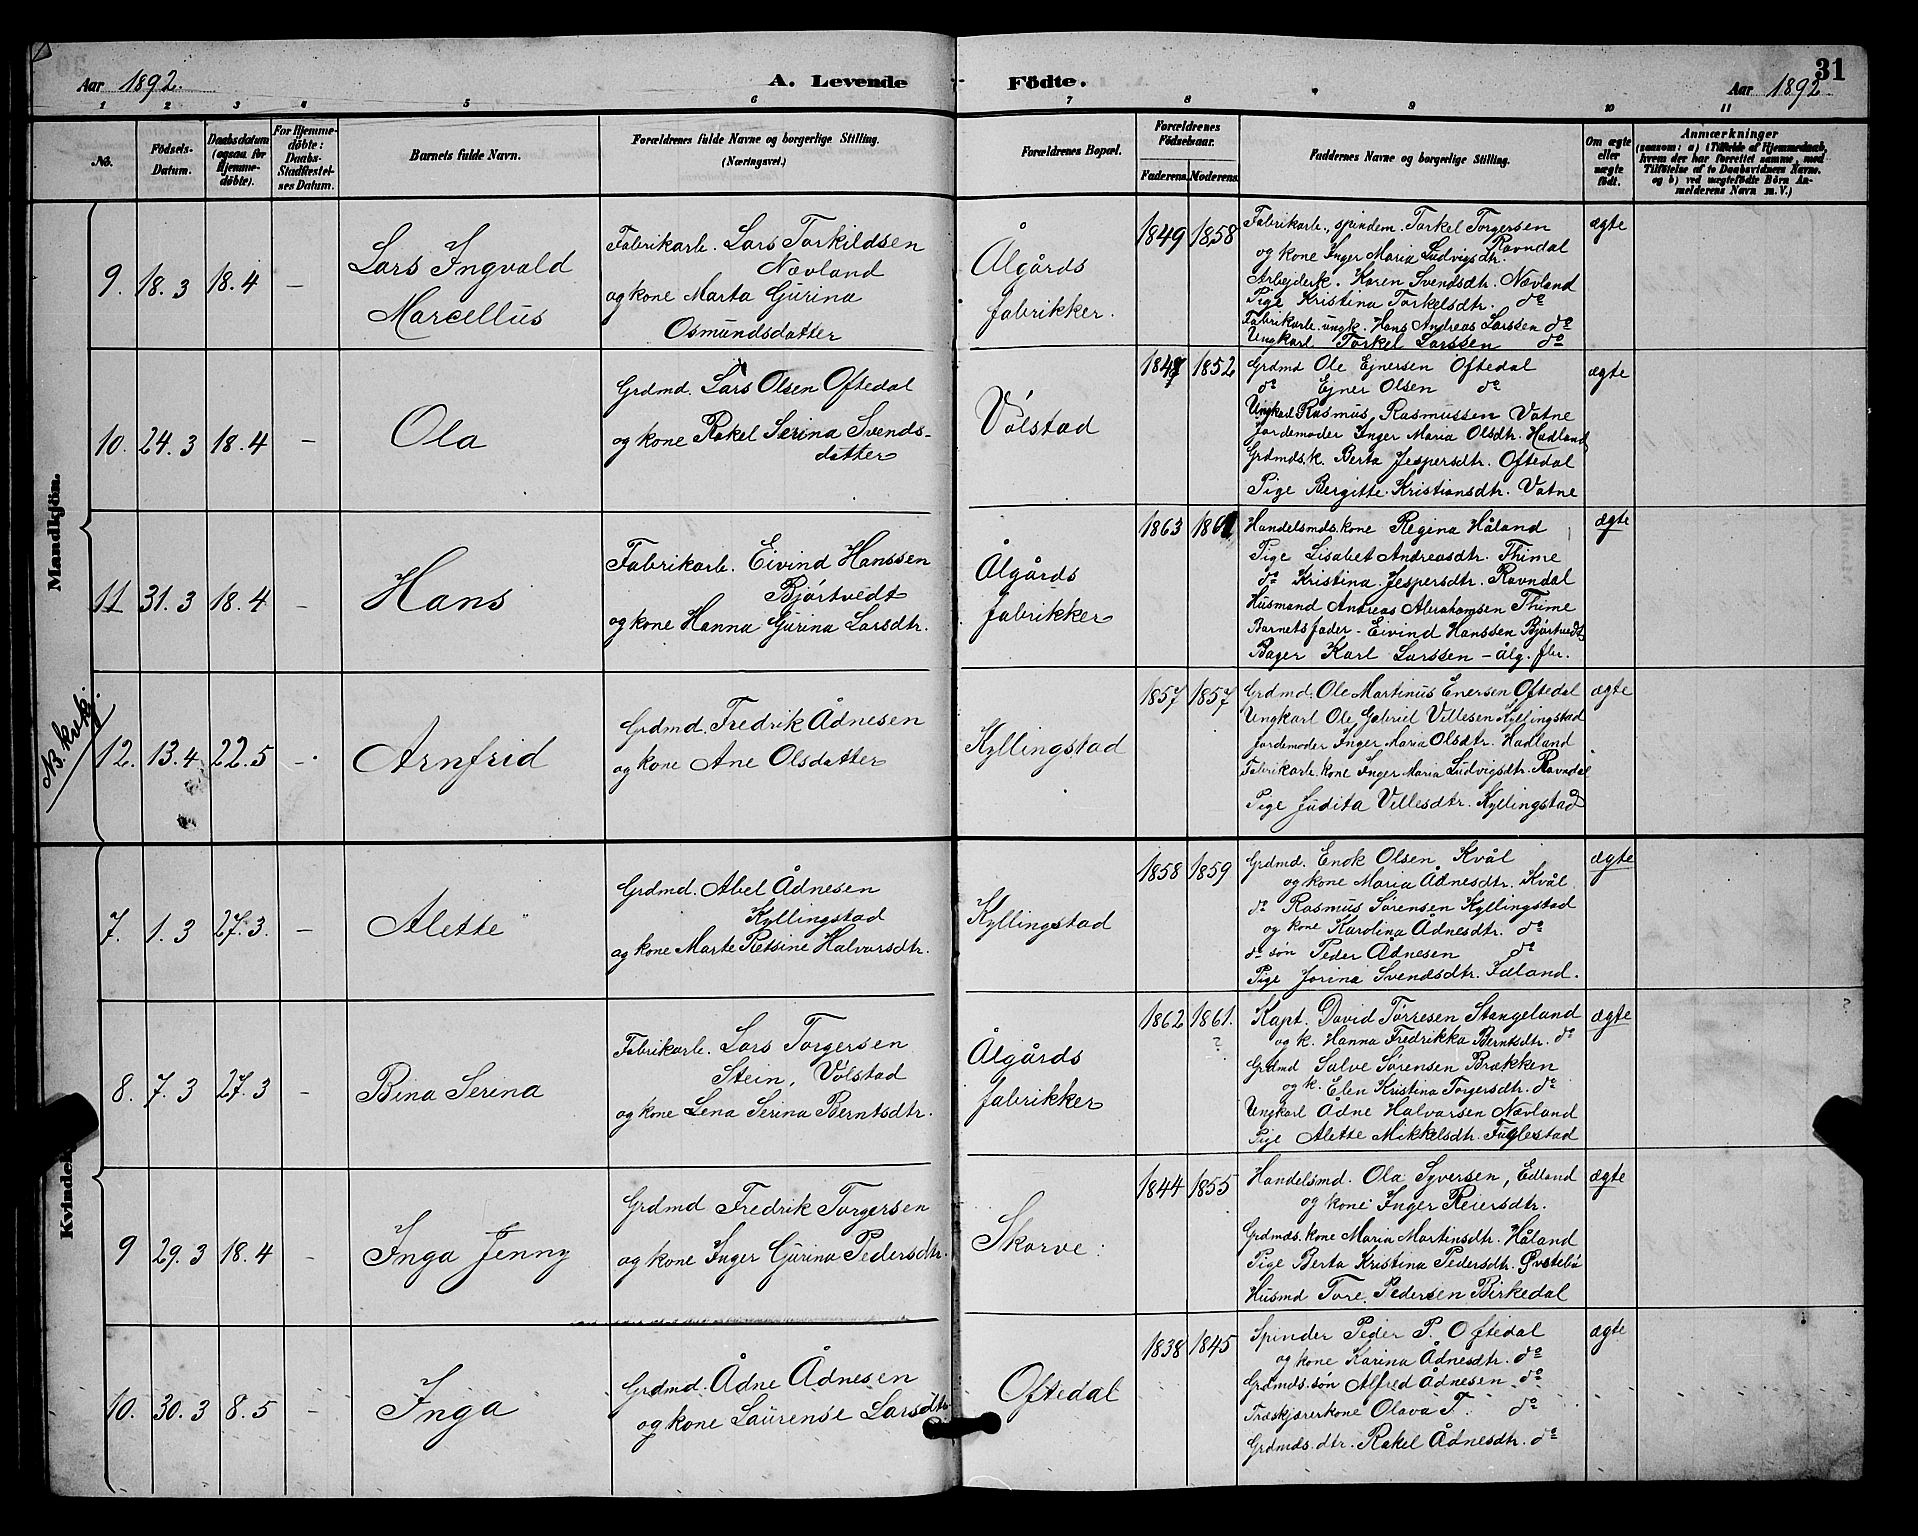 31
Aar 1892.
A. Levende Födte.
Aar 1892
1 2 3 4 5 6 7 8 9 10 11
No.
Födsels-
Datum.
Daabsdatum
(ogsaa for
Hjemme-
döbte).
For Hjemme-
döbte:
Daabs-
Stadfæstel-
ses Datum.
Barnets fulde Navn.
Forældrenes fulde Navne og borgerlige Stilling.
(Næringsvei.)
Forældrenes Bopæl.
Forældrenes
Födselsaar.
Faderens. Moderens.
Faddernes Navne og borgerlige Stilling.
Om ægte
eller
uægte
födt.
Anmærkninger
(saasom: a) i Tilfælde af Hjemmedaab,
hvem der har forrettet samme, med
Tilföielse af to Daabsvidners Navne,
og b) ved uægtefödte Börn An-
melderens Navn m. V.)
Mandkjön.
9. 18.3 18.4 —
Lars Ingvald
Marcellus
Fabrikarb. Lars Torkildsen
Nævland
og kone Marta Gurina
Osmundsdatter
Ålgårds
fabrikker.
1849 1858
Fabrikarb., spindem. Torkel Torgersen
og kone Inger Maria Ludvigsdtr. Ravndal
Arbejderk. Karen Svendsdtr. Nævland
Pige Kristina Torkelsdtr. do
Fabrikarb. ungk. Hans Andreas Larssen do
Ungkarl Torkel Larssen do
ægte
10. 24.3 18.4 —
Ola
Grdmd. Lars Olsen Oftedal
og kone Rakel Serina Svends-
datter
Vølstad
1852
Grdmd Ole Ejnersen Oftedal
do Ejner Olsen do
Ungkarl Rasmus Rasmussen Vatne
Jordemoder Inger Maria Olsdtr. Hadland
Grdmds.k. Berta Jespersdtr. Oftedal
Pige Bergitte Kristiansdtr. Vatne
ægte
11 31.3 18.4 —
Hans
Fabrikarb. Eivind Hanssen
Bjørtvedt
og kone Hanna Gurina Larsdtr.
Ålgårds
fabrikker
1863
Handelsmds.kone Regina Håland
Pige Lisabet Andreasdtr. Thime
do Kristina Jespersdtr. Ravndal
Husmand Andreas Abrahamsen Thime
Barnets fader - Eivind Hanssen Bjørtvedt
Bager Karl Larssen - Ålg. fbr.
ægte
NB. kvkj.
12. 13.4 22.5 —
Arnfrid
Grdmd. Fredrik Ådnesen
og kone Ane Olsdatter
Kyllingstad
1857 1857
Grdmd. Ole Martinus Enersen Oftedal
Ungkarl Ole Gabriel Villesen Kyllingstad
Jordemoder Inger Maria Olsdtr. Hadland
Fabrikarb. kone Inger Maria Ludvigsdtr. Ravndal
Pige Judita Villesdtr. Kyllingstad
ægte
7. 1.3 27.3. —
Alette
Grdmd. Abel Ådnesen
Kyllingstad
og kone Marte Retsine Halvarsdtr.
Kyllingstad
1858 1859
Grdmd. Enok Olsen Kvål
og kone Maria Ådnesdtr. Kvål
do Rasmus Sørensen Kyllingstad
og kone Karolina Ådnesdtr. do
do søn Peder Ådnesen do
Pige Jorina Svendsdtr. Edland.
ægte
8. 7.3 27.3 —
Bina Serina
Fabrikarb. Lars Torgersen
Stein, Vølstad
og kone Lena Serina Berntsdtr.
Ålgårds
fabrikker
1862 1861.
?
Kapt. David Tørresen Stangeland
og k. Hanna Fredrikka Berntsdtr. do
Grdmd Salve Sørensen Brækken
og k. Elen Kristina Torgersdtr. do
Ungkarl Ådne Halvarsen Nævland
Pige Alette Mikkelsdtr. Fuglestad
ægte
Kvindek
9 29.3 18.4 —
Inga Jenny
Grdmd Fredrik Torgersen
og kone Inger Gurina Pedersdtr.
Skorve.
1844 1855
Handelsmd. Ola Syversen, Edland
og kone Inger Reiersdtr.
Grdmds. kone Maria Martinsdtr. Håland
Pige Berta Kristina Pedersdtr. Øvstebø
Husmd Tore Pedersen Birkedal
ægte
10. 30.3 8.5 —
Inga
Grdmd. Ådne Ådnesen
og kone Laurense Larsdtr
Oftedal
1838 1845
Spinder Peder P. Oftedal
og kone Karina Ådnesdtr. do
Grdmds. søn Alfred Ådnesen do
Træskjærerkone Olava T. do
Grdmds. dtr. Rakel Ådnesdtr. do
ægte